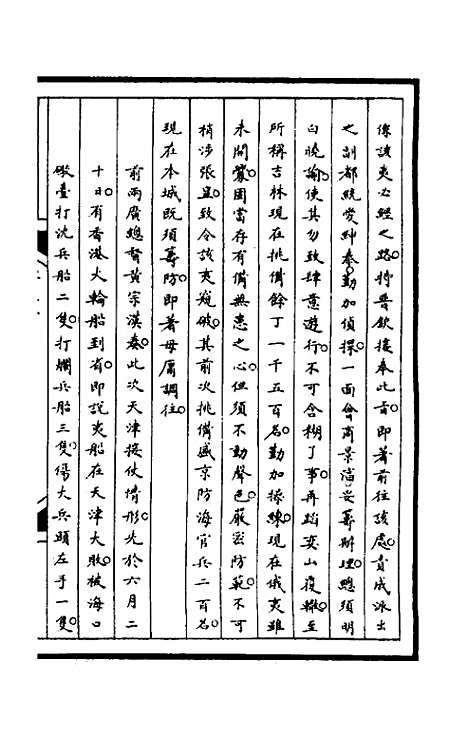 係該夷必經之路。特普欽接奉此旨。即著前往該處。責成派出
之副都統愛紳泰。勤加偵探。一面會商景淳妥籌辦理。總須明
白曉諭。使其勿致肆意遊行。不可含糊了事。再蹈奕山覆轍。至
所稱吉林現在挑備餘丁一千五百名。勤加操練。現在俄夷雖
未開釁。固當存有備無患之心。但須不動聲色。嚴密防範。不可
稍涉張皇。致令該夷窺破。其前次挑備盛京防海官兵二百名。
現在本城既須籌防。即著毋庸調往。
前兩廣總督黃宗漢奏。此次天津接仗情形。先於六月二
十日。有香港火輪船到省。即說夷船在天津大敗。被海口
礮臺打沈兵船二隻。打爛兵船三隻。傷大兵頭左手一隻。